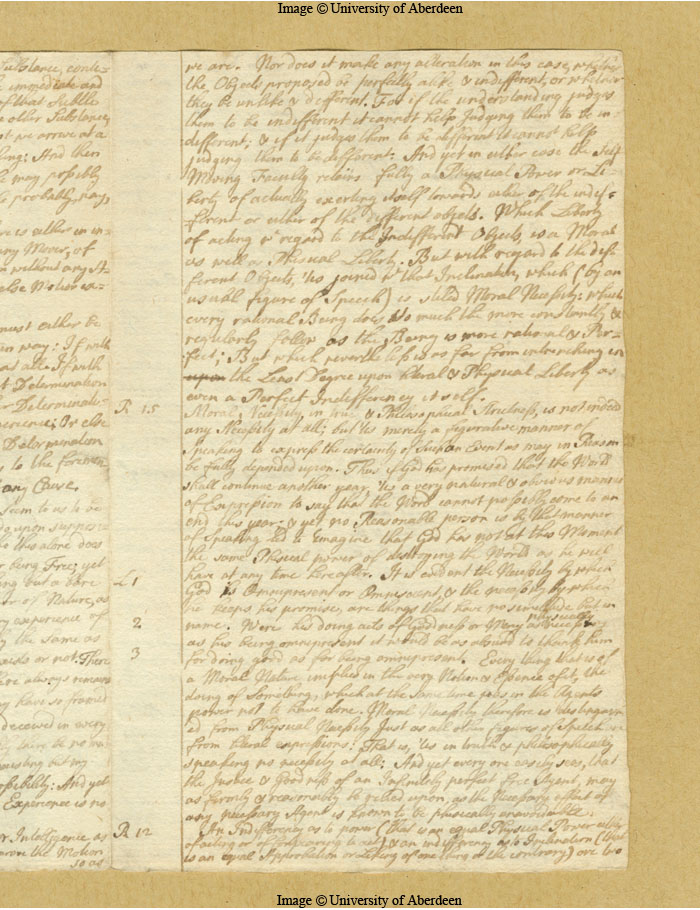 Image © University of Aberdeen
Substance, conte-
immediate and
of what Subtle
other Substance,
we arrive at a
And then
may possibly
probably may,
is either in in-
any Mover, of
without any
else Motion
must either be
way: If with
at all. If with
Determination
Determinati-
perience; Or else
Determination
to the
any Cause.
Seem to us to be
upon suppose
this alone does
being Free; yet
but a bare
of Nature, as
experience of
the same as
or not. There
always remains
have so framed
deceived in every
there be no
but my
possibility: And yet
Experience is no
Intelligence, as
the Motion
so as
R 15
L 1
2
3
R 12
we are. Nor does it make any alteration in this case, whether
the Objects proposed be perfectly alike & indifferent, or whether
they be unlike & different. For if the understanding judges
them to be indifferent it cannot help Judging them to be in-
different; & if it judges them to be different it cannot help
judging them to be different. And yet in either case the Self
Moving Faculty retains fully a Physical Power or Li-
berty of actually exerting itself towards either of the indif-
ferent or either of the different objects. Which Liberty
of acting wt regard to the Indifferent Objects, is a Moral
as well as Phisical Liberty. But with regard to the dif-
ferent Objects, 'tis joined wt that Inclination, which (by an
usuall figure of Speech) is stiled Moral Necessity: which
every rational Being does so much the more constantly &
regularly follow as the Being is more rational & Per-
fect; But which nevertheless is as far from intrenching in
upon the Least Degree upon literal & Physical Liberty as
even a Perfect Indifferency itself.
Moral Necessity, in true & Philosophical Strictness, is not indeed
any Necessity at all; but 'tis merely a figurative manner of
Speaking to express the certainty of Such an Event as may in Reason
be fully depended upon. Thus if God has promised that the World
shall continue another year, 'tis a very natural & obvious manner
of Expression to say that the World cannot possibly come to an
end this year; & yet no Reasonable person is by that manner
of Speaking led to Imagine that God has not at this Moment
the same Phisical power of destroying the World as he will
have at any time hereafter. It is evident the Necessity by which
God is Omnipresent or Omniscient, & the necessity by which
he keeps his promise, are things that have no similitude but in
name. Were his doing acts of goodness or Mercy as physically necessary
as his being omnipresent it would be as absurd to thank him
for doing good as for being omnipresent. Every thing that is of
a Moral Nature implies in the very Notion & Essence of it, the
doing of Something, which at the same time was in the Agents
power not to have done. Moral Necessity therefore is distinguish-
ed from Physical Necessity Just as all other figures of Speech are
from literal expressions: That is, 'tis in truth & philosophically
speaking no necessity at all; And yet every one easily sees, that
the Justice & Goodness of an Infinitely perfect free Agent, may
as firmly & reasonably be relied upon, as the Necessary effect of
any necessary Agent is known to be physically unavoidable.
An Indifferency as to power (that is an equal Physical Power either
of acting or of forbearing to act) & an indifferency as to Inclination (that
is an equal Approbation or Liking of one thing or the contrary) are two
Image © University of Aberdeen